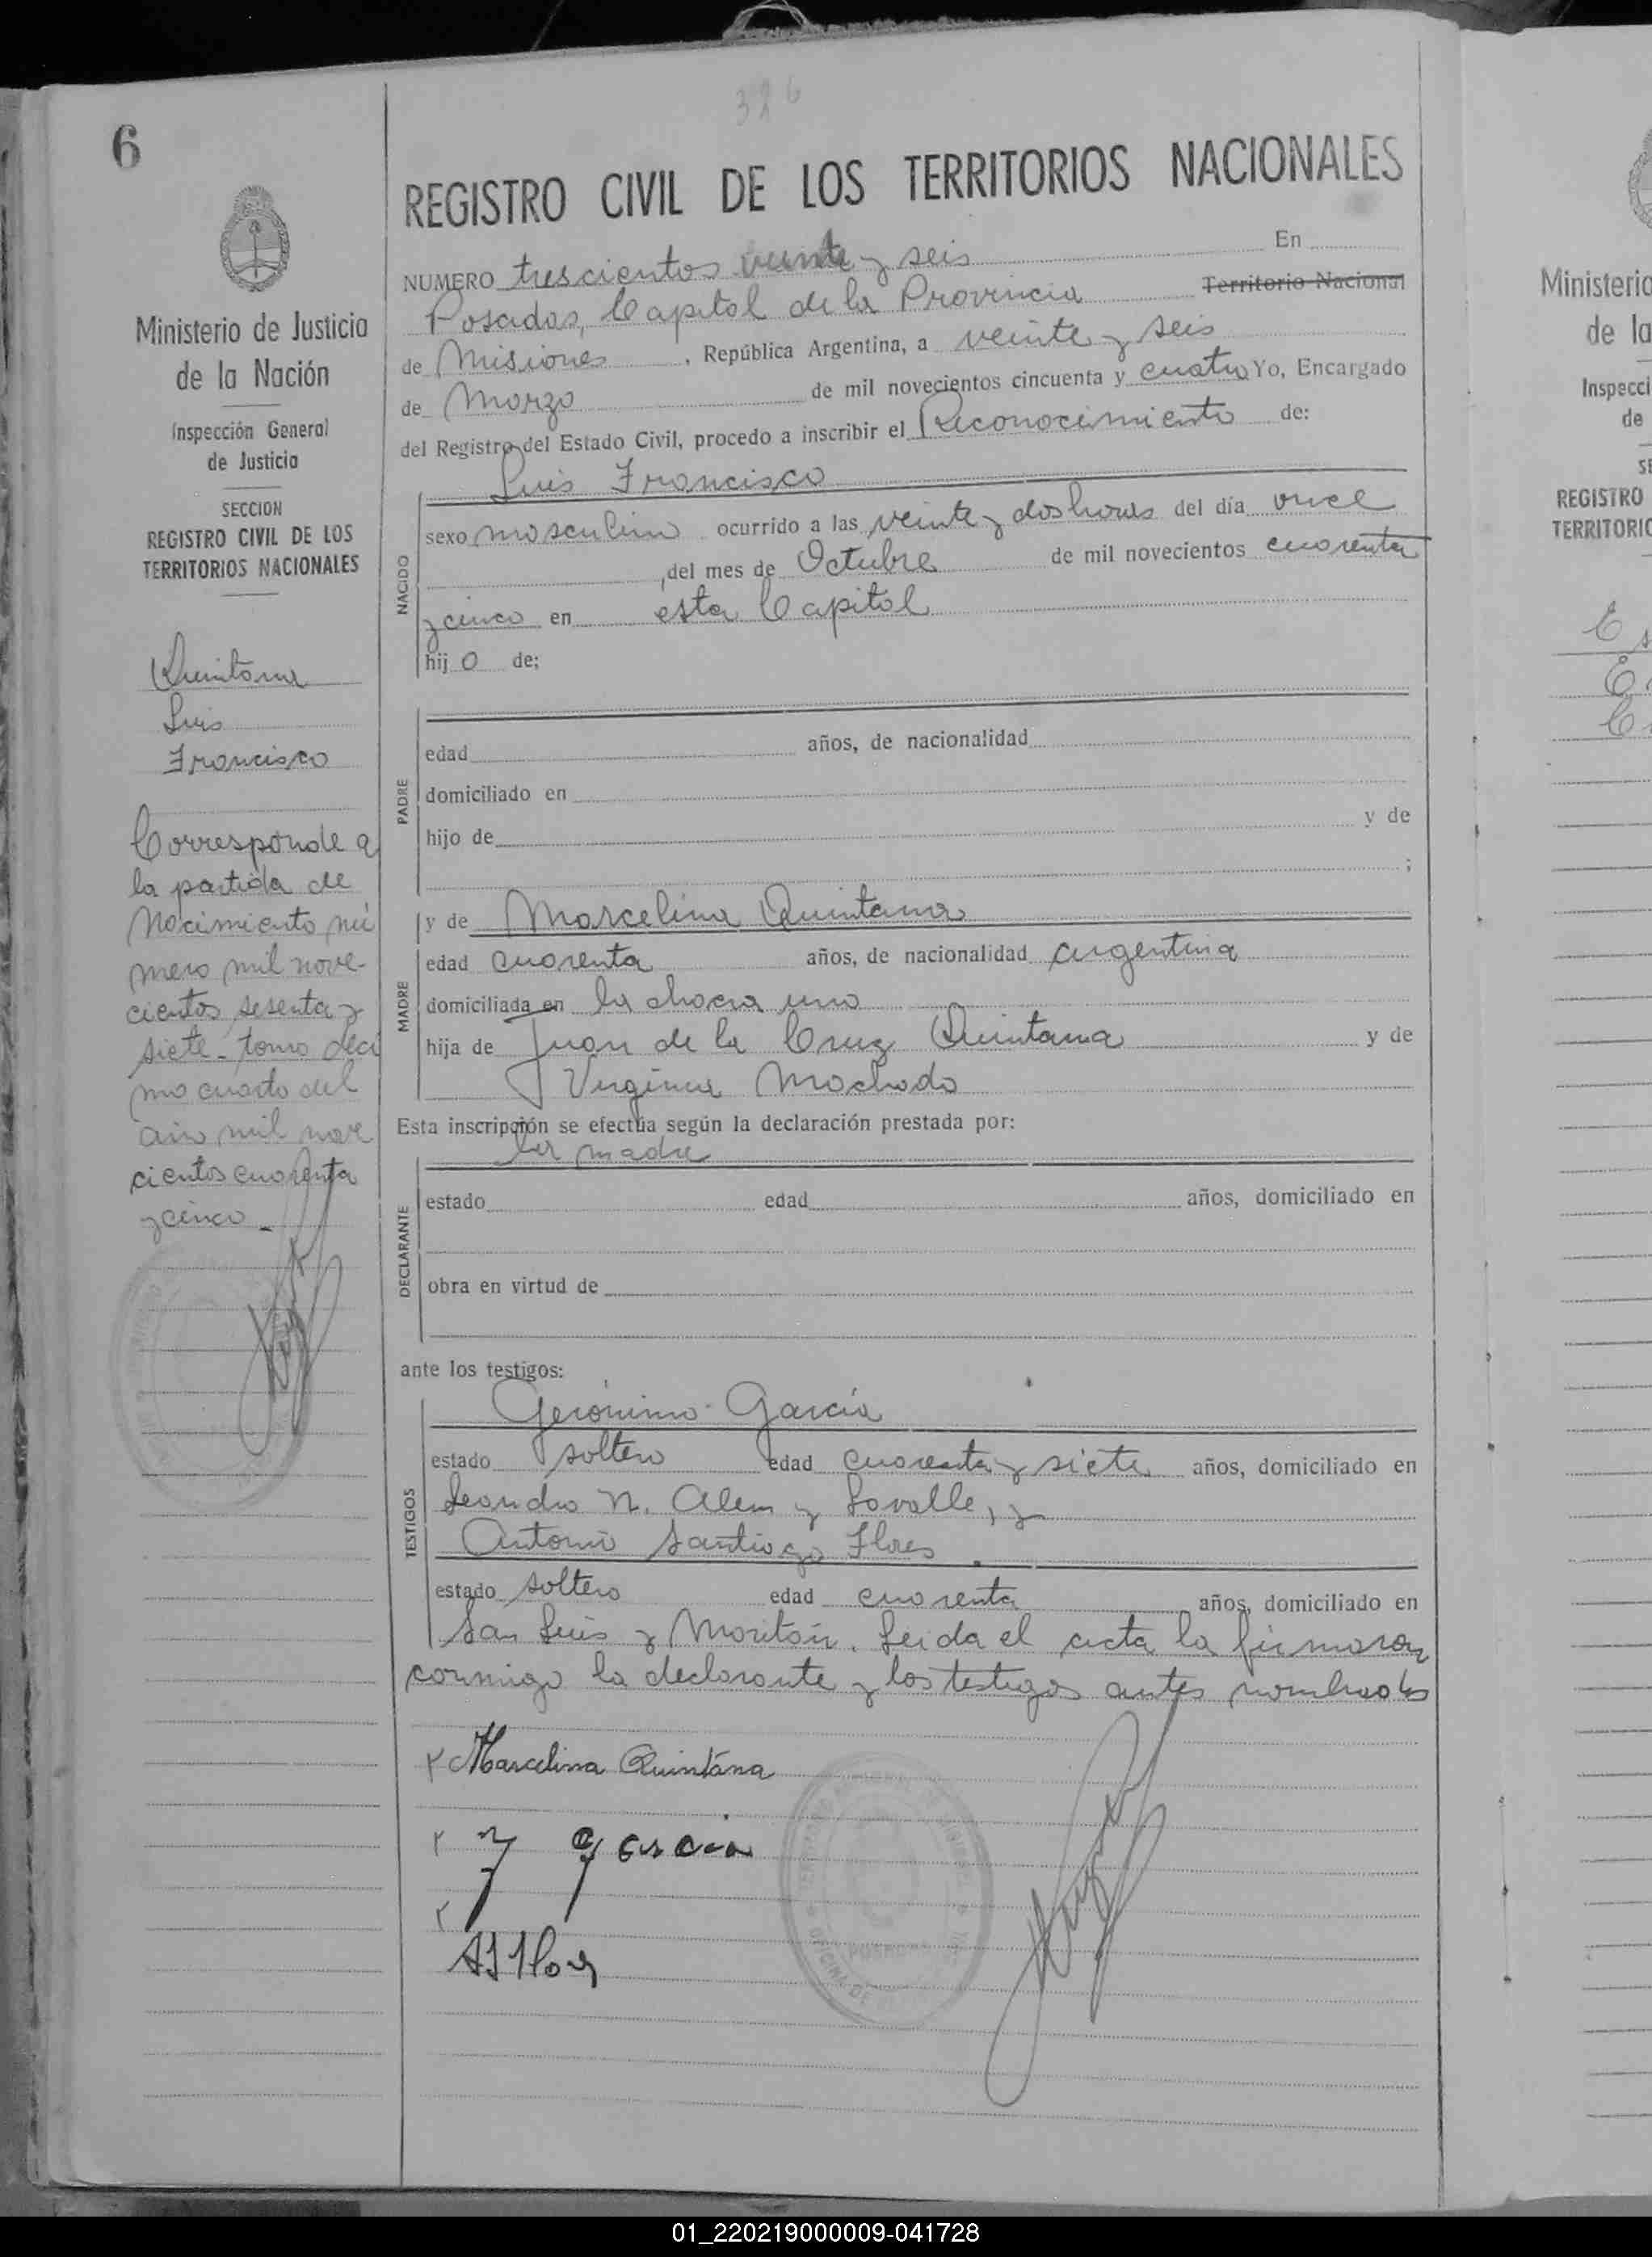 326
6
REGISTRO CIVIL DE LOS TERRITORIOS NACIONALES
NUMERO trescientos veinte y seis En
Posadas, Capital de la Provincia Territorio Nacional
de Misiones, República Argentina, a veinte y seis
de Marzo de mil novecientos cincuenta y cuatro Yo, Encargado
del Registro del Estado Civil, procedo a inscribir el Reconocimiento de:
Luis Francisco
NACIDO
sexo masculino ocurrido a las veinte y dos horas del día once
,del mes de Octubre de mil novecientos cuarenta
y cinco en esta Capital
hij o de;
PADRE
edad años, de nacionalidad
domiciliado en
hijo de y de
;
MADRE
y de Marcelina Quintana
edad cuarenta años, de nacionalidad argentina
domiciliada en la chacra uno
hija de Juan de la Cruz Quintana y de
Virginia Machado
Esta inscripción se efectúa según la declaración prestada por:
la madre
DECLARANTE
estado edad años, domiciliado en
obra en virtud de
ante los testigos:
Gerónimo García
TESTIGOS
estado soltero edad cuarenta y siete años, domiciliado en
Leandro N. Alem y Lavalle, y
Antonio Santiago Flores
estado soltero edad cuarenta años, domiciliado en
San Luis y Moritán. Leida el acta la firmaron
conmigo la declarante y los testigos antes nombrados
Marcelina Quintana
garcia
OFICINA DE
POSADAS
Ministerio de Justicia
de la Nación
Inspección General
de Justicia
SECCION
REGISTRO CIVIL DE LOS
TERRITORIOS NACIONALES
Quintana
Luis
Francisco
Corresponde a
la partida de
Nacimiento nú
mero mil nove-
cientos sesenta y
siete - tomo deci
mo cuarto del
año mil nove
cientos cuarenta
y cinco -
Ministerio
de la
Inspecci
de
SE
REGISTRO
TERRITORIO
01_220219000009-041728